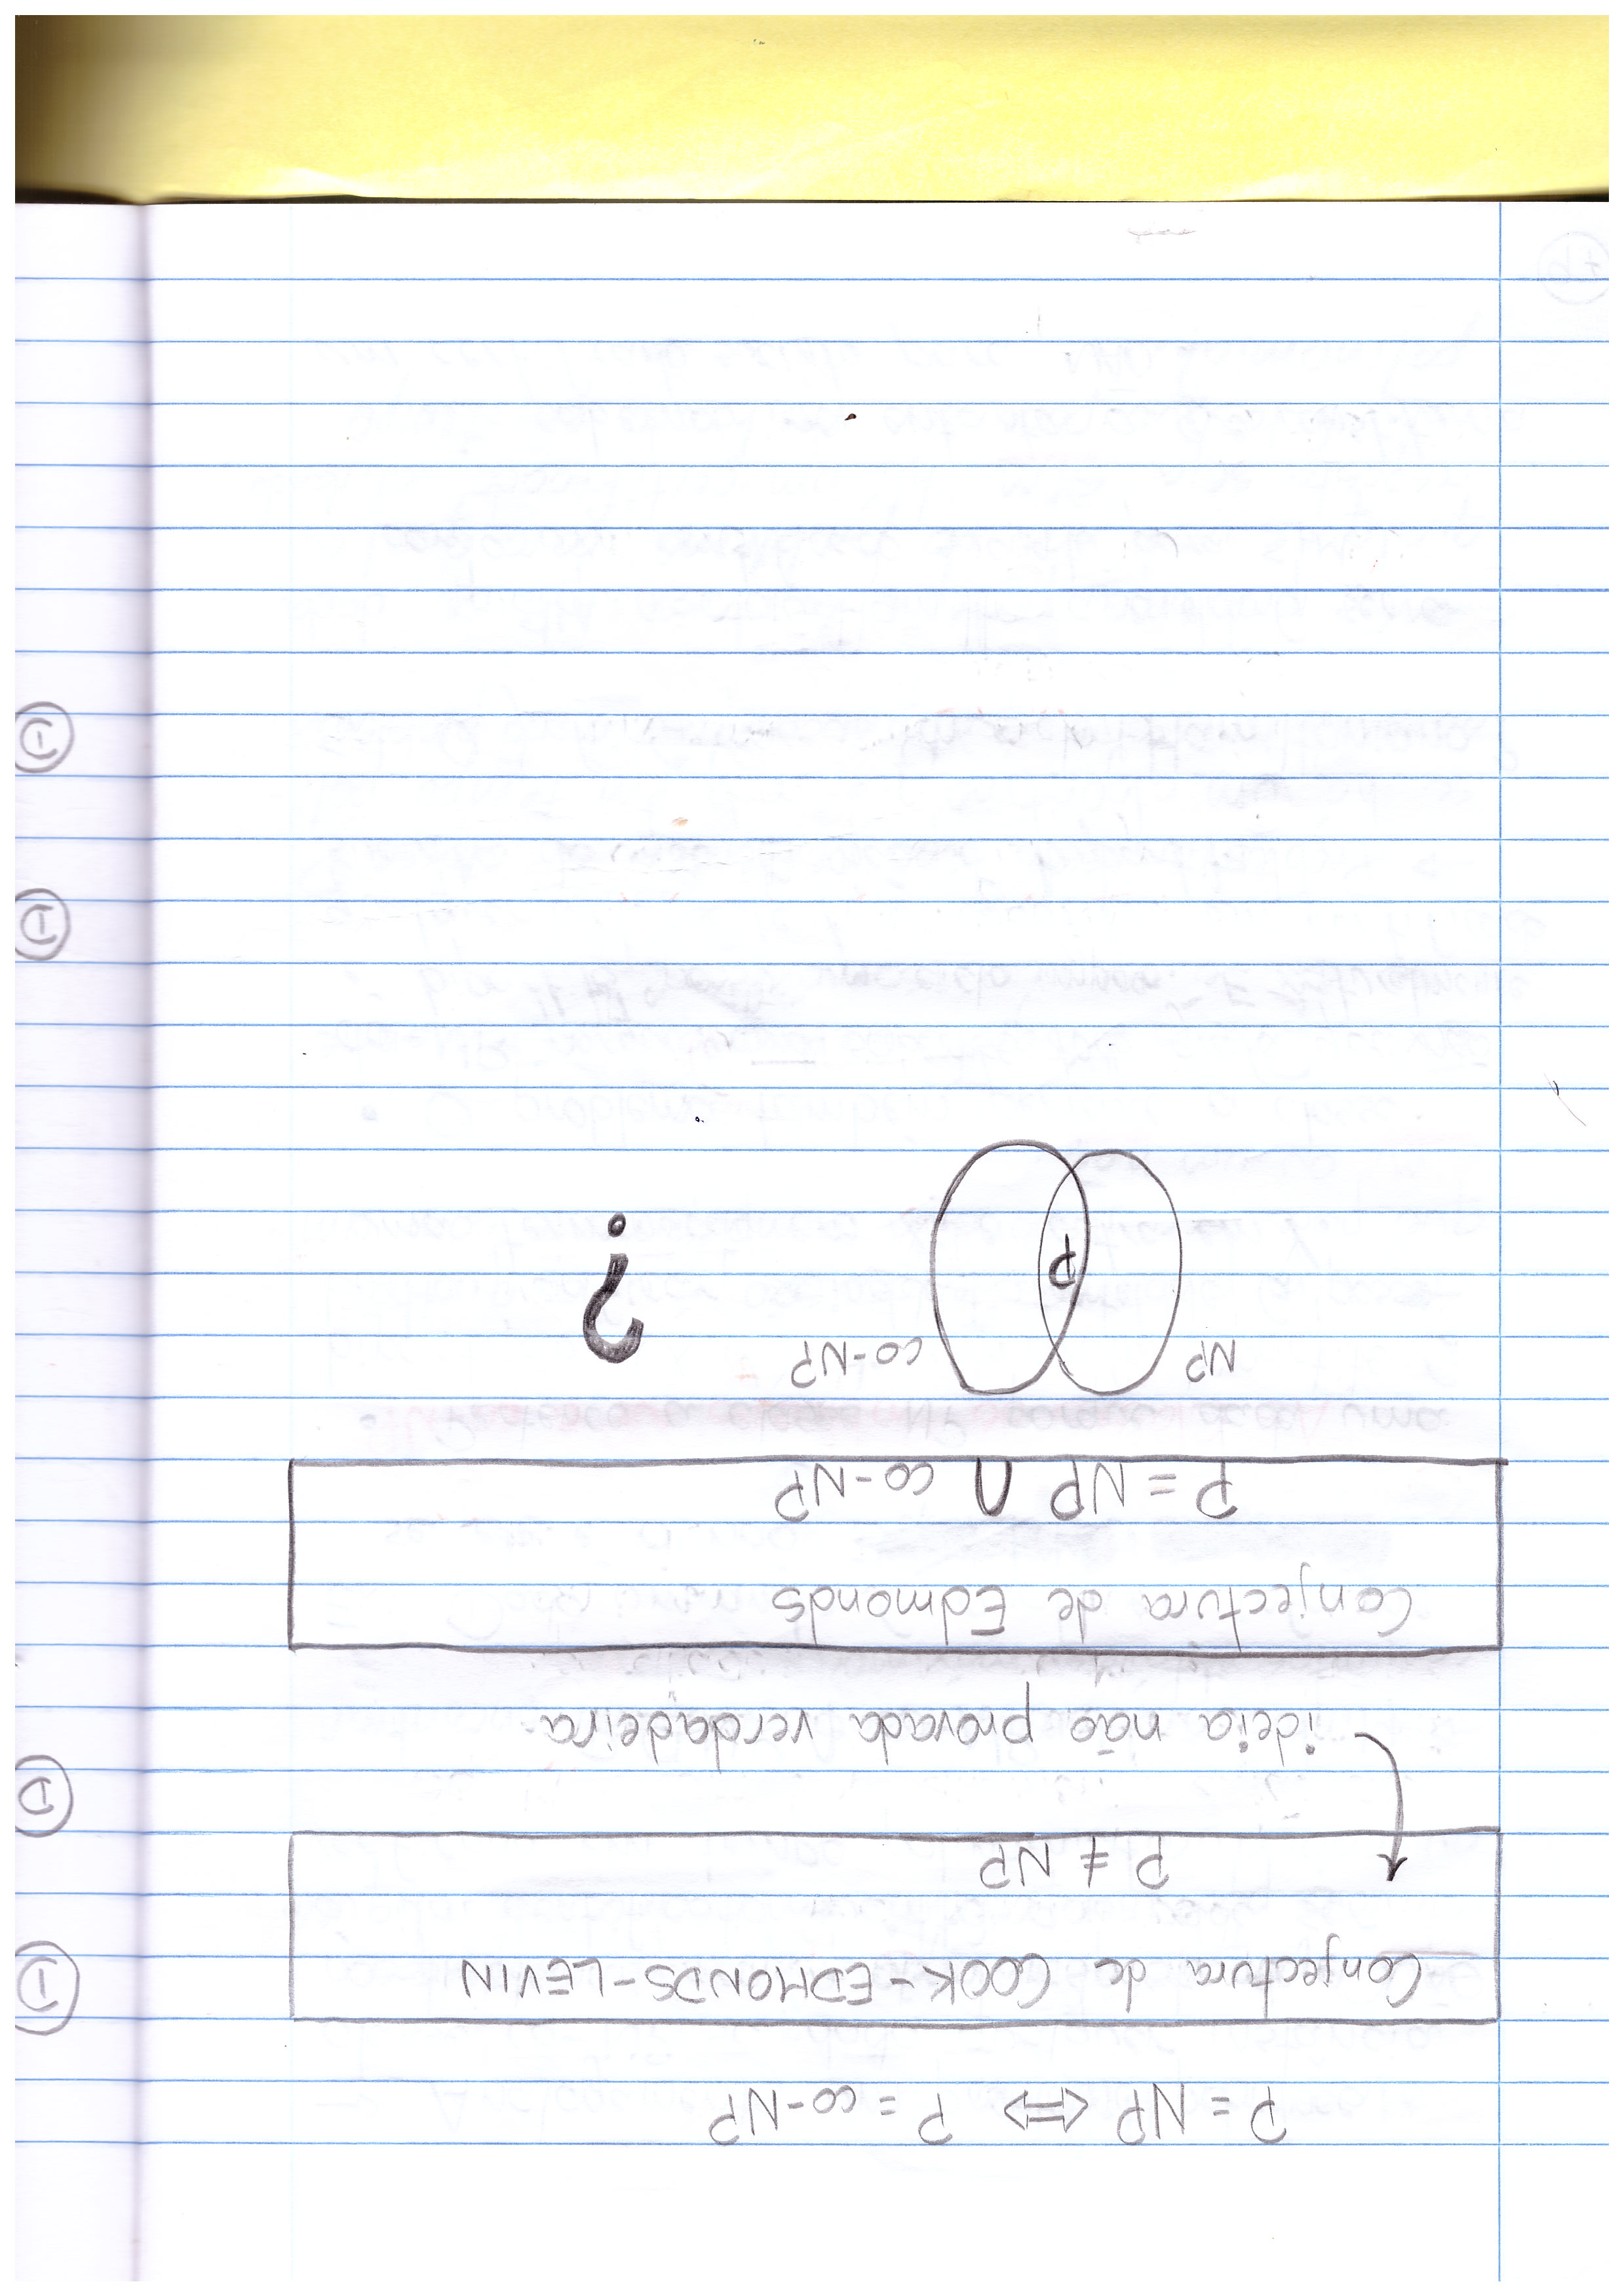 P = NP ⟺ P = co-NP
Conjectura de COOK-EDMONDS-LEVIN
P ≠ NP
ideia não provada verdadeira
Conjectura de Edmonds
P = NP ∩ co-NP
NP
co-NP
P
?
D
D
D
D